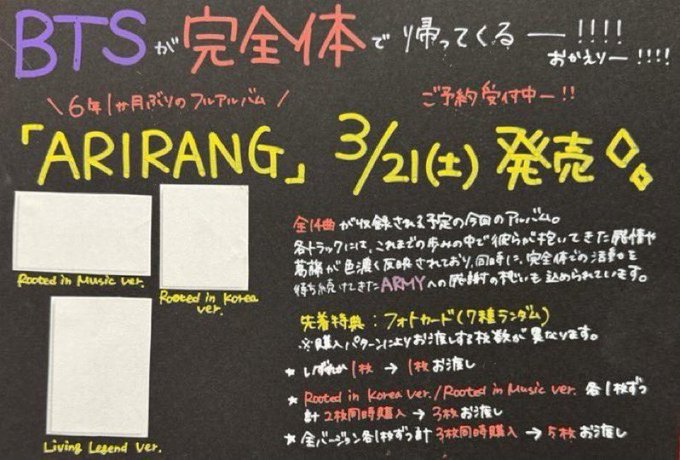 BTSが完全体で帰ってくるー!!!!
おかえりー!!!!
\ 6年1か月ぶりのフルアルバム /
ご予約受付中ー!!
「ARIRANG」3/21(土)発売
全14曲が収録される予定の今回のアルバム。
各トラックには、これまでの歩みの中で彼らが抱いてきた感情や
葛藤が色濃く反映されており、同時に、完全体での活動を
待ち続けてきたARMYへの感謝の想いも込められています。
Rooted in Music ver.
Rooted in Korea
ver.
Living Legend ver.
先着特典:フォトカード(7種ランダム)
※購入パターンによりお渡しする枚数が異なります。
★ いずれか1枚 → 1枚お渡し
★ Rooted in Korea ver./Rooted in Music ver. 各1枚ずつ
計2枚同時購入 → 3枚お渡し
★ 全バージョン各1枚ずつ計3枚同時購入 → 5枚お渡し